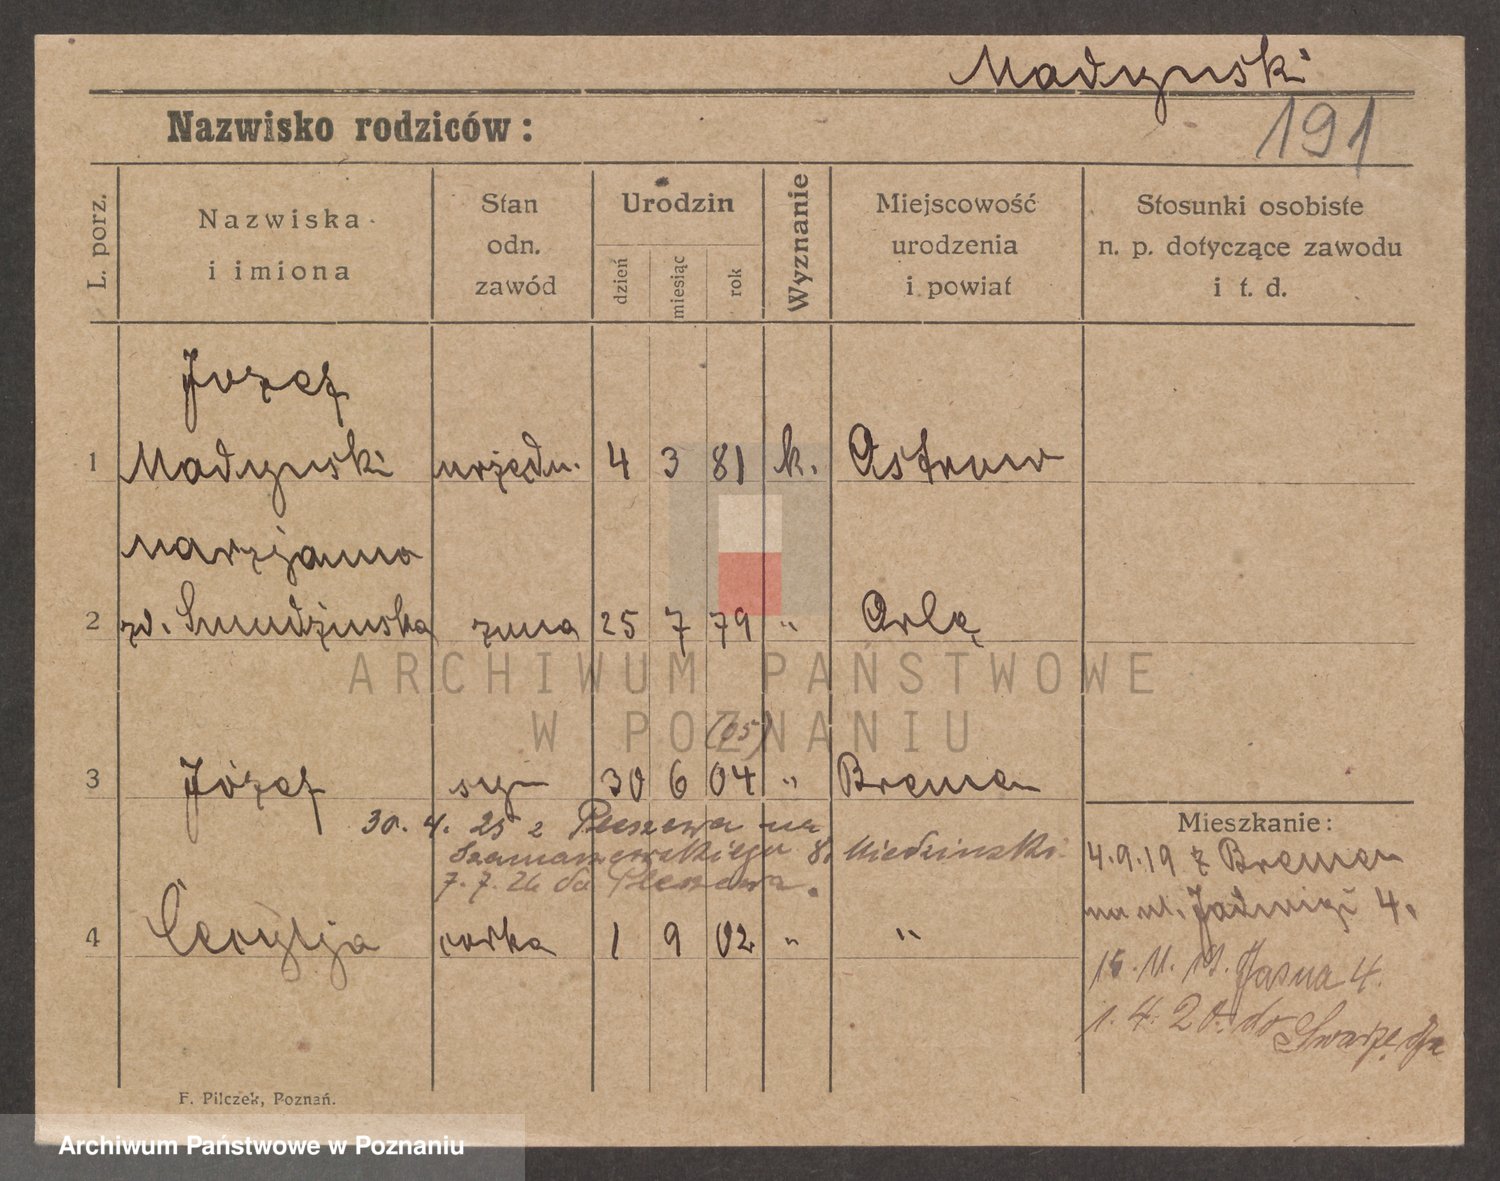 Madyński
191
Nazwisko rodziców:
L. porz.
Nazwiska
i imiona
Stan
odn.
zawód
Urodzin
dzień
miesiąc
rok
Wyznanie
Miejscowość
urodzenia
i powiat
Stosunki osobiste
n. p. dotyczące zawodu
i t. d.
Józef
1 Madyński urzędn. 4 3 81 k. Ostrow
Marzjanna
2 zd. żona 25 7 79 "
(05)
3 Józef syn 30 6 04 " Bremen
30. 4. 25 z Pleszewa na
Szamarzewskiego 8.
7. 7. 26 do Pleszewa.
4 Cecylja córka 1 9 02 " "
Mieszkanie:
4.9.19 z Bremen
na ul. Jadwigi 4.
15. 11. 19. Jasna 4.
1. 4. 20. do
Swarzędza
F. Pilczek, Poznań.
ARCHIWUM PAŃSTWOWE
W POZNANIU
Archiwum Państwowe w Poznaniu